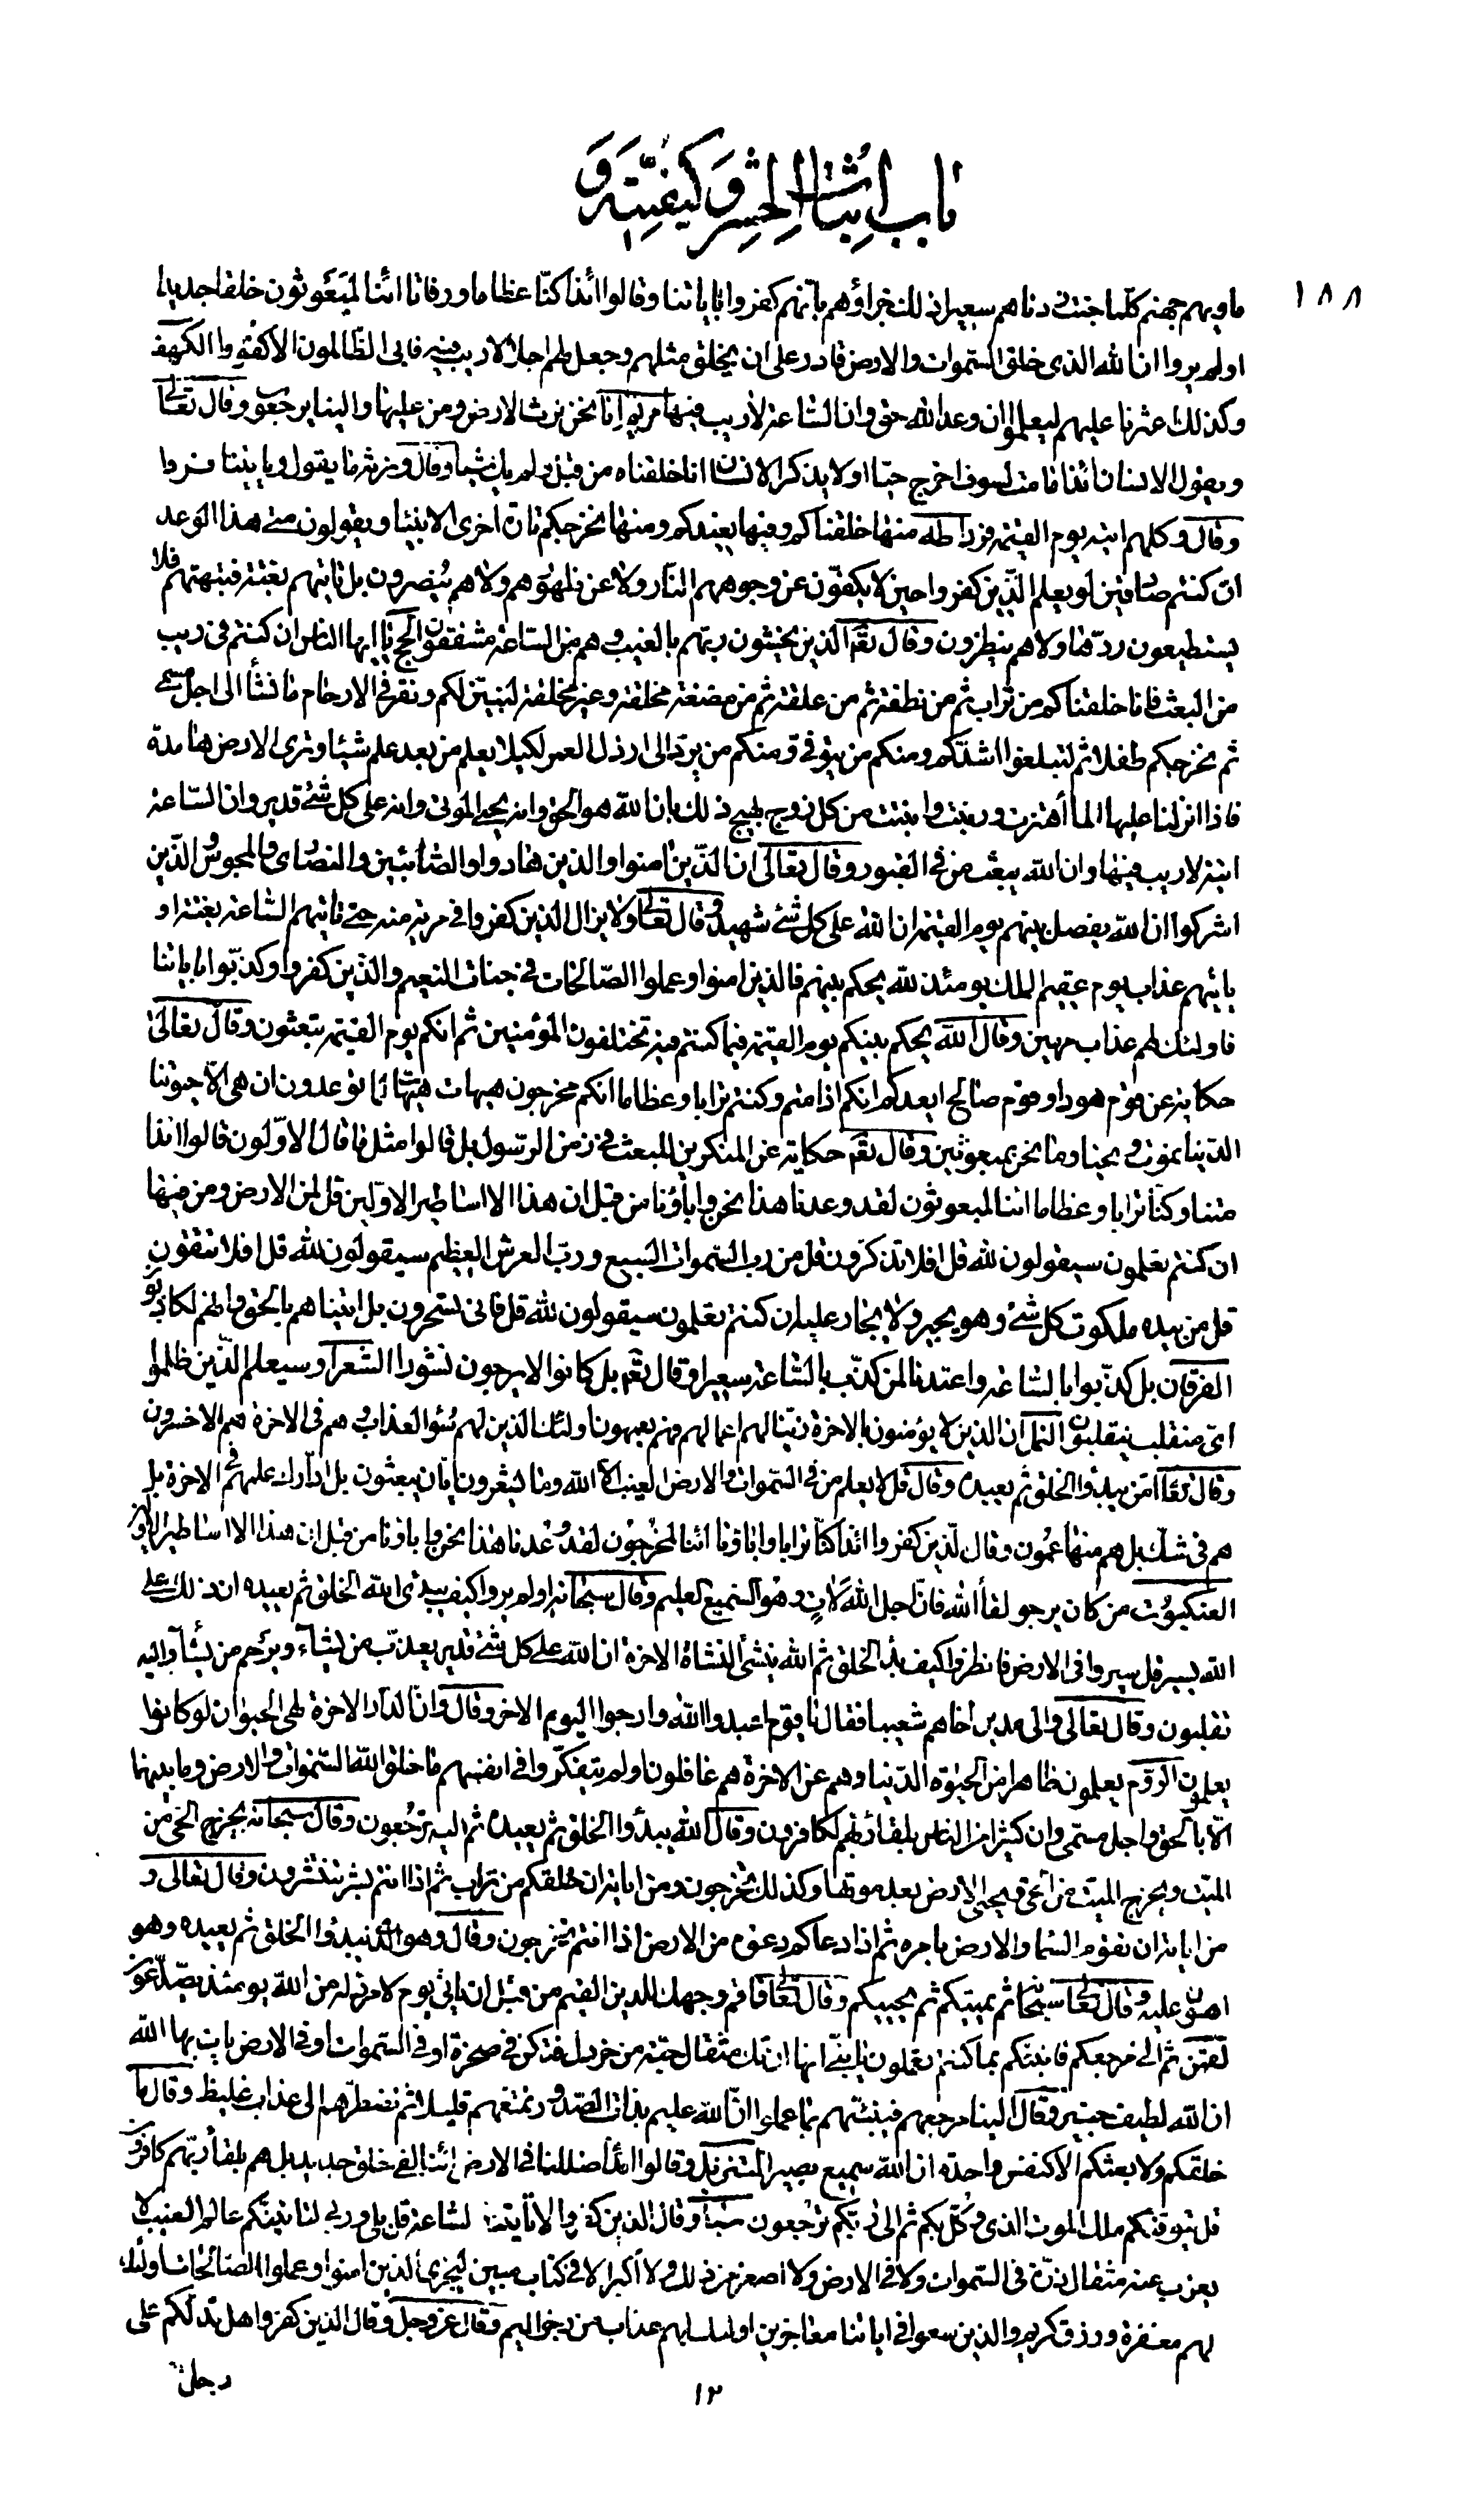 باب اثبات الحشر وكيفيته و
١٨٨
ماويهم جهنم كلما خبت زدناهم سعيرا ذلك جزاؤهم بانهم كفروا باياتنا وقالوا ائذا كنا عظاما ورفاتا ائنا لمبعوثون خلقا جديدا
اولم يروا ان الله الذى خلق السموات والارض قادر على ان يخلق مثلهم وجعل لهم اجلا لا ريب فيه فابى الظالمون الا كفورا الكهف
وكذلك اعثرنا عليهم ليعلموا ان وعد الله حق وان الساعة لا ريب فيها مريم انا نحن نرث الارض ومن عليها والينا يرجعون وقال تعالى
ويقول الانسان ائذا ما مت لسوف اخرج حيا اولا يذكر الانسان انا خلقناه من قبل ولم يك شيئا وقال ونرثه ما يقول وياتينا فردا
وقال وكلهم اتيه يوم القيمة فردا طه منها خلقناكم وفيها نعيدكم ومنها نخرجكم تارة اخرى الانبيا ويقولون متى هذا الوعد
ان كنتم صادقين لو يعلم الذين كفروا حين لا يكفون عن وجوههم النار ولا عن ظهورهم ولا هم ينصرون بل تاتيهم بغتة فتبهتهم فلا
يستطيعون ردها ولا هم ينظرون وقال تعم الذين يخشون ربهم بالغيب وهم من الساعة مشفقون الحج يا ايها الناس ان كنتم فى ريب
من البعث فانا خلقناكم من تراب ثم من نطفة ثم من علقة ثم من مضغة مخلقة وغير مخلقة لنبين لكم ونقر فى الارحام ما نشأ الى اجل مسمى
ثم نخرجكم طفلا ثم لتبلغوا اشدكم ومنكم من يتوفى ومنكم من يرد الى ارذل العمر لكيلا يعلم من بعد علم شيئا وترى الارض هامدة
فاذا انزلنا عليها المأ اهتزت وربت وانبتت من كل زوج بهيج ذلك بان الله هو الحق وانه يحيى الموتى وانه على كل شئ قدير وان الساعة
اتية لا ريب فيها وان الله يبعث من فى القبور وقال تعالى ان الذين امنوا والذين هادوا والصابئين والنصارى والمجوس والذين
اشركوا ان الله يفصل بينهم يوم القيمة ان الله على كل شئ شهيد وقال تعالى ولا يزال الذين كفروا فى مرية منه حتى تاتيهم الساعة بغتة او
ياتيهم عذاب يوم عقيم الملك يومئذ لله يحكم بينهم فالذين امنوا وعملوا الصالحات فى جنات النعيم والذين كفروا وكذبوا باياتنا
فاولئك لهم عذاب مهين وقال الله يحكم بينكم يوم القيمة فيما كنتم فيه تختلفون المؤمنين ثم انكم يوم القيمة تبعثون وقال تعالى
حكاية عن قوم هود او قوم صالح ايعدكم انكم اذا متم وكنتم ترابا وعظاما انكم مخرجون هيهات هيهات لما توعدون ان هى الا حيوتنا
الدنيا نموت ونحيا وما نحن بمبعوثين وقال تعم حكاية عن المنكرين للبعث فى زمن الرسول بل قالوا مثل ما قال الاولون قالوا ائذا
متنا وكنا ترابا وعظاما ائنا لمبعوثون لقد وعدنا هذا نحن واباؤنا من قبل ان هذا الا اساطير الاولين قل لمن الارض ومن فيها
ان كنتم تعلمون سيقولون لله قل افلا تذكرون قل من رب السموات السبع ورب العرش العظيم سيقولون لله قل افلا تتقون
قل من بيده ملكوت كل شئ وهو يجير ولا يجار عليه ان كنتم تعلمون سيقولون لله قل فانى تسحرون بل اتيناهم بالحق وانهم لكاذبون
الفرقان بل كذبوا بالساعة واعتدنا لمن كذب بالساعة سعيرا وقال تعم بل كانوا لا يرجون نشورا الشعرا وسيعلم الذين ظلموا
اى منقلب ينقلبون النمل ان الذين لا يؤمنون بالاخرة زينا لهم اعمالهم فهم يعمهون اولئك الذين لهم سوء العذاب وهم فى الاخرة هم الاخسرون
وقال تعا امن يبدؤا الخلق ثم يعيده وقال قل لا يعلم من فى السموات والارض الغيب الا الله وما يشعرون ايان يبعثون بل ادارك علمهم فى الاخرة بل
هم فى شك بل هم منها عمون وقال الذين كفروا ائذا كنا ترابا واباؤنا ائنا لمخرجون لقد وعدنا هذا نحن واباؤنا من قبل ان هذا الا اساطير الاولين
العنكبوت من كان يرجو لقأ الله فان اجل الله لات وهو السميع العليم وقال سبحانه اولم يروا كيف يبدئ الله الخلق ثم يعيده ان ذلك على
الله يسير قل سيروا فى الارض فانظروا كيف بدأ الخلق ثم الله ينشئ النشاة الاخرة ان الله على كل شئ قدير يعذب من يشاء ويرحم من يشاء واليه
تقلبون وقال تعالى والى مدين اخاهم شعيبا فقال يا قوم اعبدوا الله وارجوا اليوم الاخر وقال وان الدار الاخرة لهى الحيوان لو كانوا
يعلمون الروم يعلمون ظاهرا من الحيوة الدنيا وهم عن الاخرة هم غافلون اولم يتفكروا فى انفسهم ما خلق الله السموات والارض وما بينهما
الا بالحق واجل مسمى وان كثيرا من الناس بلقاء ربهم لكافرون وقال الله يبدؤا الخلق ثم يعيده ثم اليه ترجعون وقال سبحانه يخرج الحى من
الميت ويخرج الميت من الحى ويحيى الارض بعد موتها وكذلك تخرجون ومن اياته ان خلقكم من تراب ثم اذا انتم بشر تنتشرون وقال تعالى و
من اياته ان تقوم السما والارض بامره ثم اذا دعاكم دعوة من الارض اذا انتم تخرجون وقال وهو الذى يبدؤا الخلق ثم يعيده وهو
اهون عليه وقال تعالى سبحانه ثم يميتكم ثم يحييكم وقال تعالى فاقم وجهك للدين القيم من قبل ان ياتى يوم لا مرد له من الله يومئذ يصدعون
لقمن ثم الى مرجعكم فانبئكم بما كنتم تعملون يا بنى انها ان تك مثقال حبة من خردل فتكن فى صخرة او فى السموات او فى الارض يات بها الله
ان الله لطيف خبير وقال الينا مرجعهم فننبئهم بما عملوا ان الله عليم بذات الصدور نمتعهم قليلا ثم نضطرهم الى عذاب غليظ وقال ما
خلقكم ولا بعثكم الا كنفس واحدة ان الله سميع بصير التنزيل وقالوا ائذا ضللنا فى الارض ائنا لفى خلق جديد بل هم بلقأ ربهم كافرون
قل يتوفيكم ملك الموت الذى وكل بكم ثم الى ربكم ترجعون سبأ وقال الذين كفروا لا تأتينا الساعة قل بلى وربى لتاتينكم عالم الغيب لا
يعزب عنه مثقال ذرة فى السموات ولا فى الارض ولا اصغر من ذلك ولا اكبر الا فى كتاب مبين ليجزى الذين امنوا وعملوا الصالحات اولئك
لهم مغفرة ورزق كريم والذين سعوا فى اياتنا معاجزين اولئك لهم عذاب من رجز اليم وقال عز وجل وقال الذين كفروا هل ندلكم على
رجل
١٢